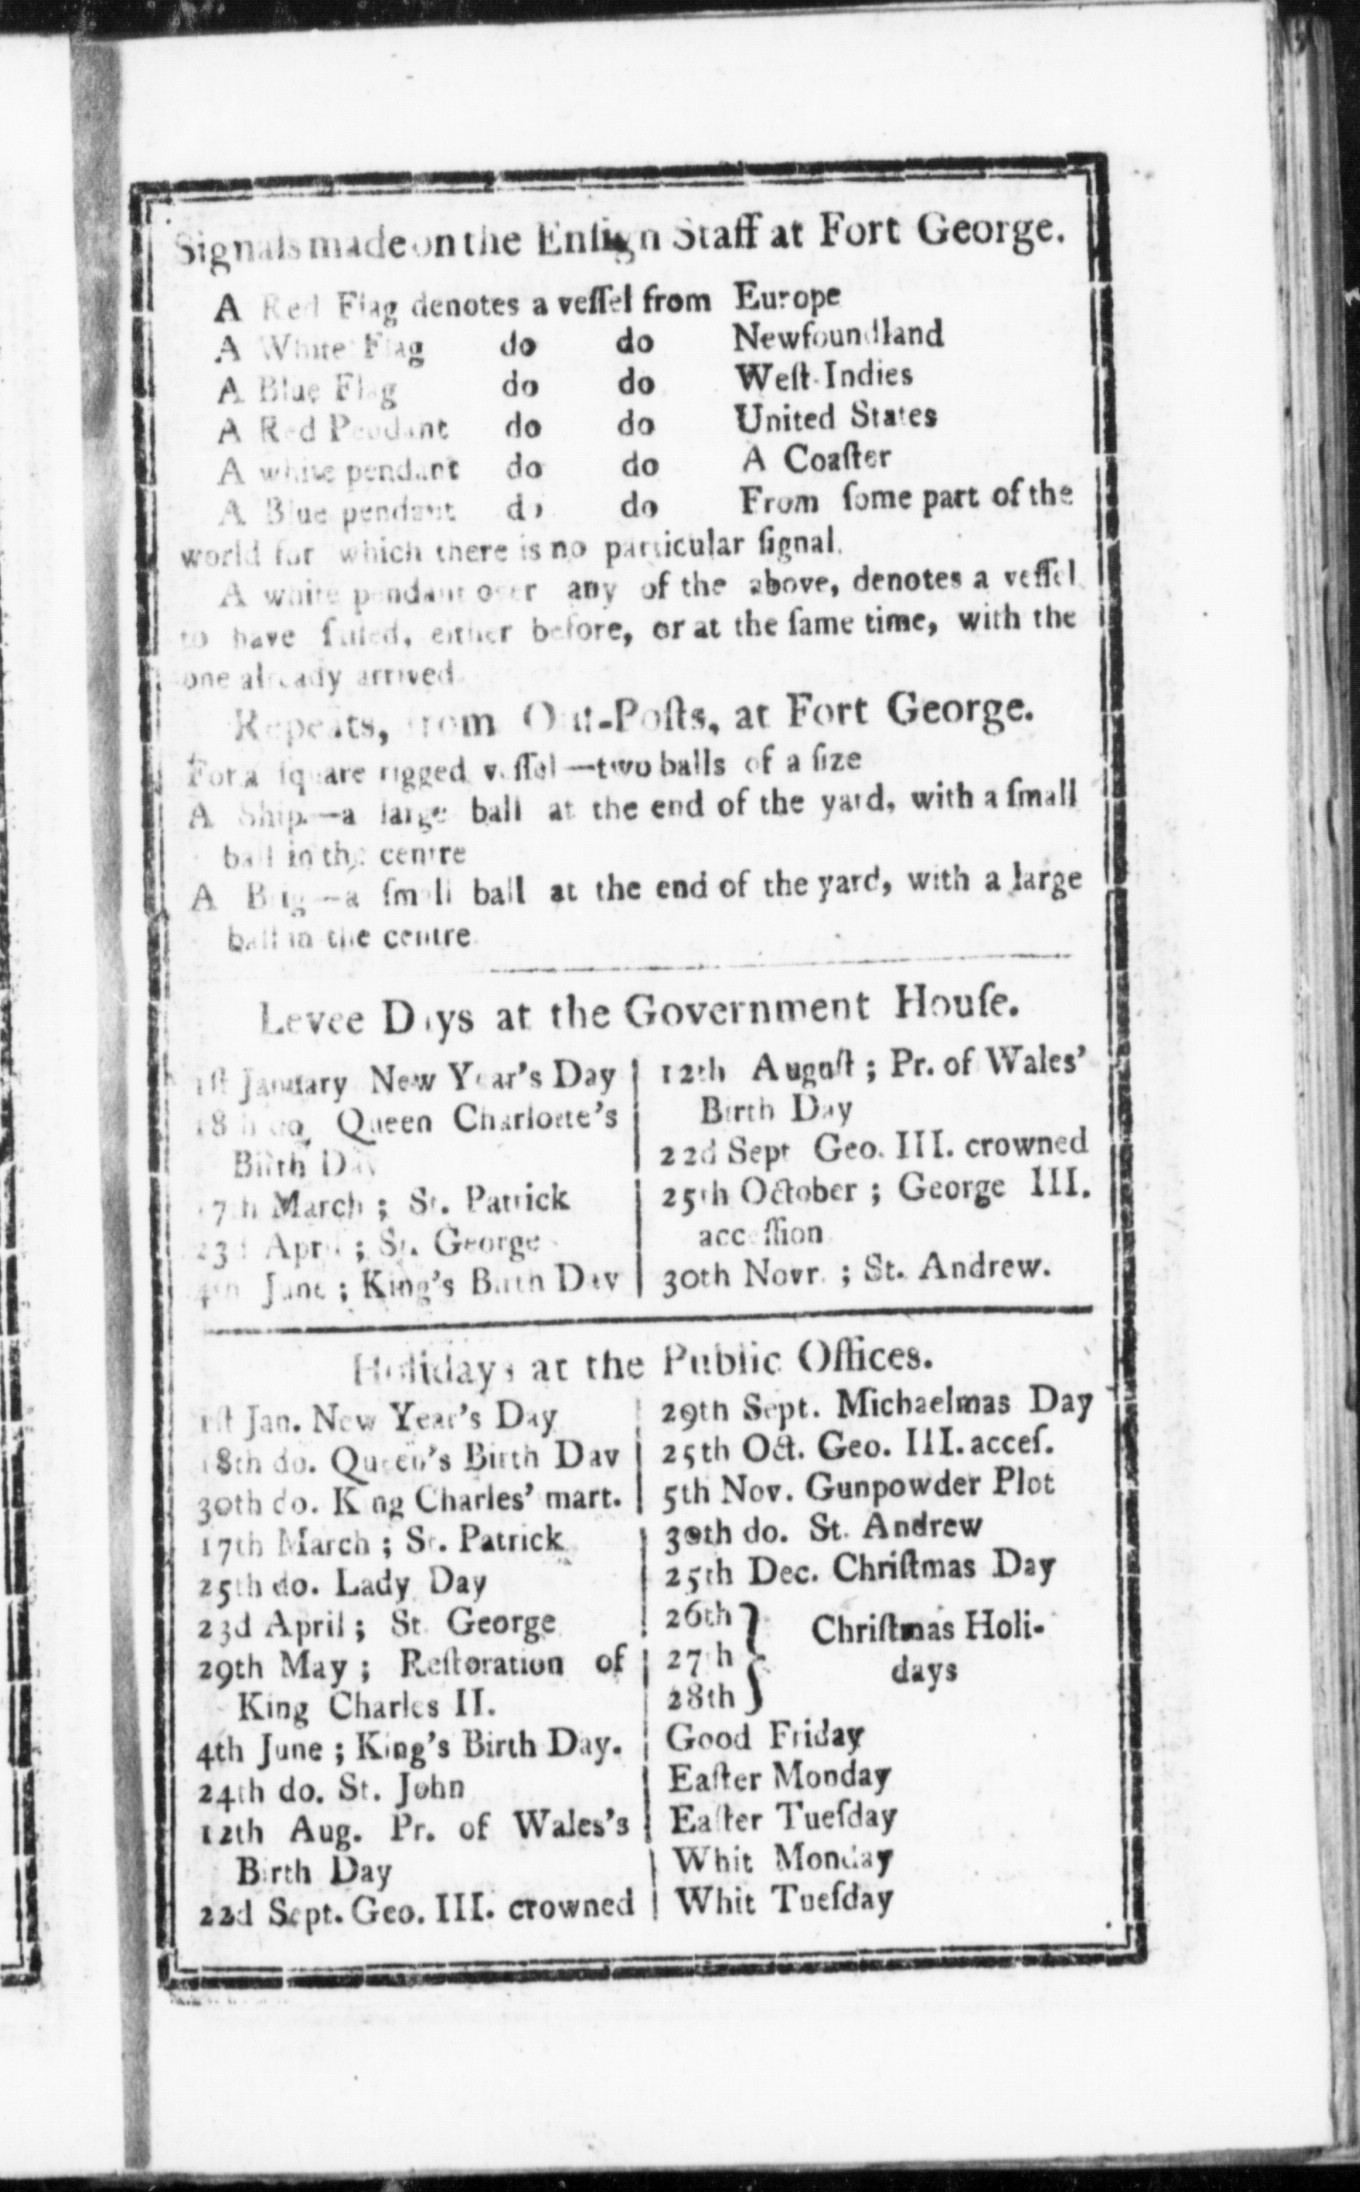 Signals made on the Enſign Staff at Fort George.
A Red Flag denotes a veſſel from Europe
A White Flag do do Newfoundland
A Blue Flag do do Weſt-Indies
A Red Pendant do do United States
A white pendant do do A Coaſter
A Blue pendant do do From ſome part of the
world for which there is no particular ſignal.
A white pendant over any of the above, denotes a veſſel
to have ſailed, either before, or at the ſame time, with the
one already arrived.
Repeats, from Out-Poſts, at Fort George.
For a ſquare rigged veſſel—two balls of a ſize
A Ship—a large ball at the end of the yard, with a ſmall
ball in the centre
A Brig—a ſmall ball at the end of the yard, with a large
ball in the centre.
Levee Days at the Government Houſe.
1ſt January New Year's Day
18th do. Queen Charlotte's
Birth Day
17th March ; St. Patrick
23d April ; St. George
4th June ; King's Birth Day
12th Auguſt ; Pr. of Wales'
Birth Day
22d Sept Geo. III. crowned
25th October ; George III.
acceſſion
30th Novr. ; St. Andrew.
Holidays at the Public Offices.
1ſt Jan. New Year's Day
18th do. Queen's Birth Day
30th do. King Charles' mart.
17th March ; St. Patrick
25th do. Lady Day
23d April ; St. George
29th May ; Reſtoration of
King Charles II.
4th June ; King's Birth Day.
24th do. St. John
12th Aug. Pr. of Wales's
Birth Day
22d Sept. Geo. III. crowned
29th Sept. Michaelmas Day
25th Oct. Geo. III. acceſ.
5th Nov. Gunpowder Plot
30th do. St. Andrew
25th Dec. Chriſtmas Day
26th
27th
28th
} Chriſtmas Holi-
days
Good Friday
Eaſter Monday
Eaſter Tueſday
Whit Monday
Whit Tueſday